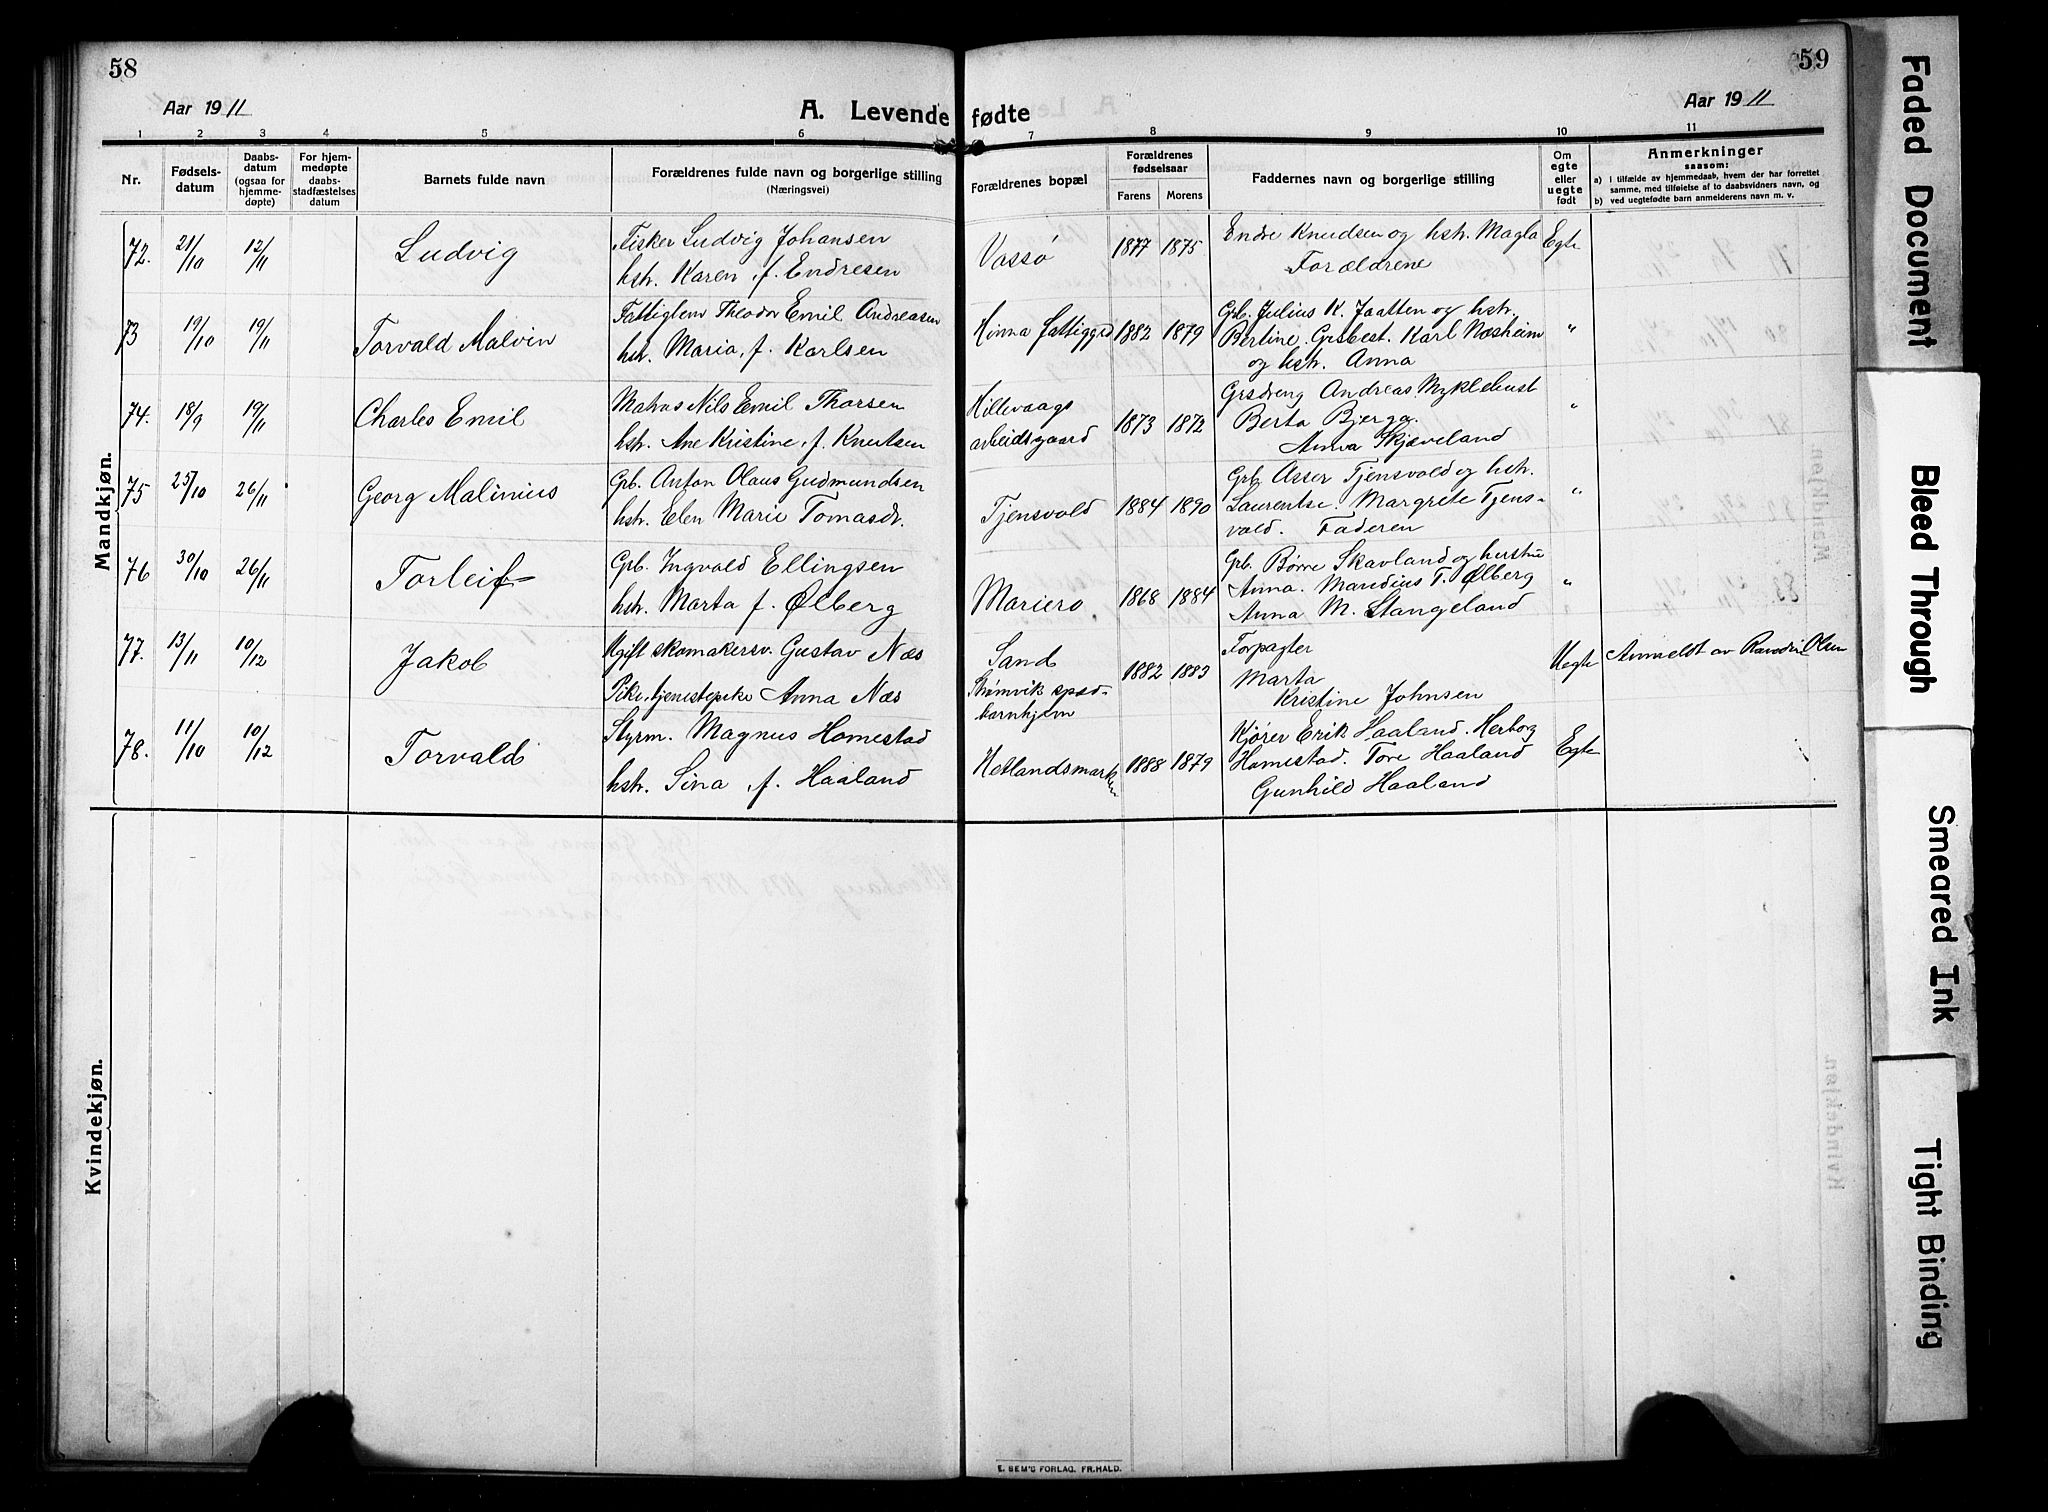 58
59
Aar 1911
A. Levende fødte
Aar 1911
1 2 3 4 5 6 7 8 9 10 11
Nr.
Fødselsdatum
Daabsdatum (ogsaa for hjemmedøpte)
For hjemmedøpte daabsstadfæstelses datum
Barnets fulde navn
Forældrenes fulde navn og borgerlige stilling
(Næringsvei)
Forældrenes bopæl
Forældrenes fødselsaar
Farens Morens
Faddernes navn og borgerlige stilling
Om egte eller uegte født
Anmerkninger
saasom:
a) i tilfælde av hjemmedaab, hvem der har forrettet samme, med tilføielse af to daabsvidners navn, og
b) ved uegtefødte barn anmelderens navn m. v.
Mandkjøn.
72. 21/10 12/11 Ludvig
Fisker Ludvig Johansen
hstr. Karen f. Endresen
Vassø 1877 1875
Endre Knudsen og hstr. Magla
Forældrene
Egte
73 19/10 19/11 Torvald Malvin
Fattiglem Theodor Emil Andreasen
hstr. Maria f. Karlsen
Hinna fattiggrd 1882 1879
Grb. Julius K. Jaatten og hstr.
Bertine. Grbbest. Karl Næsheim
og hstr. Anna
"
74. 18/9 19/11 Charles Emil
Matros Nils Emil Thorsen
hstr. Ane Kristine f. Knutsen
Hillevaags
arbeidsgaard 1873 1872
Grsdreng Andreas Myklebust
Berta Bjerga.
Anna Skjæveland
"
75 25/10 26/11 Georg Malinius
Grb. Anton Olaus Gudmundsen
hstr. Elen Marie Tomasdr.
Tjensvold 1884 1890
Grb. Asser Tjensvold og hstr.
Laurentse. Margrete Tjens-
vold. Faderen
"
76 30/10 26/11 Torleif
Grb. Ingvald Ellingsen
hstr. Marta f. Ølberg
Mariero 1868 1884
Grb. Børre Skavland og hustru
Anna. Mandius T. Ølberg
Anna M. Stangeland
"
77. 13/11 10/12 Jakob
Ugift skomakersv. Gustav Næs
Pike, tjenestepike Anna Næs
Sand
Strømvik spæd-
barnhjem 1882 1883
Forpagter
Marta
Kristine Johnsen
Uegte
Anmeldt av Olsen
78. 11/10 10/12 Torvald
Styrm. Magnus Homestad
hstr. Sina f. Haaland
Hetlandsmarken 1888 1879
Kjører Erik Haaland. Herborg
Homestad. Tore Haaland
Gunhild Haaland
Egte
Kvindekjøn.
E. SEM'S FORLAG, FR.HALD.
Faded Document
Bleed Through
Smeared Ink
Tight Binding